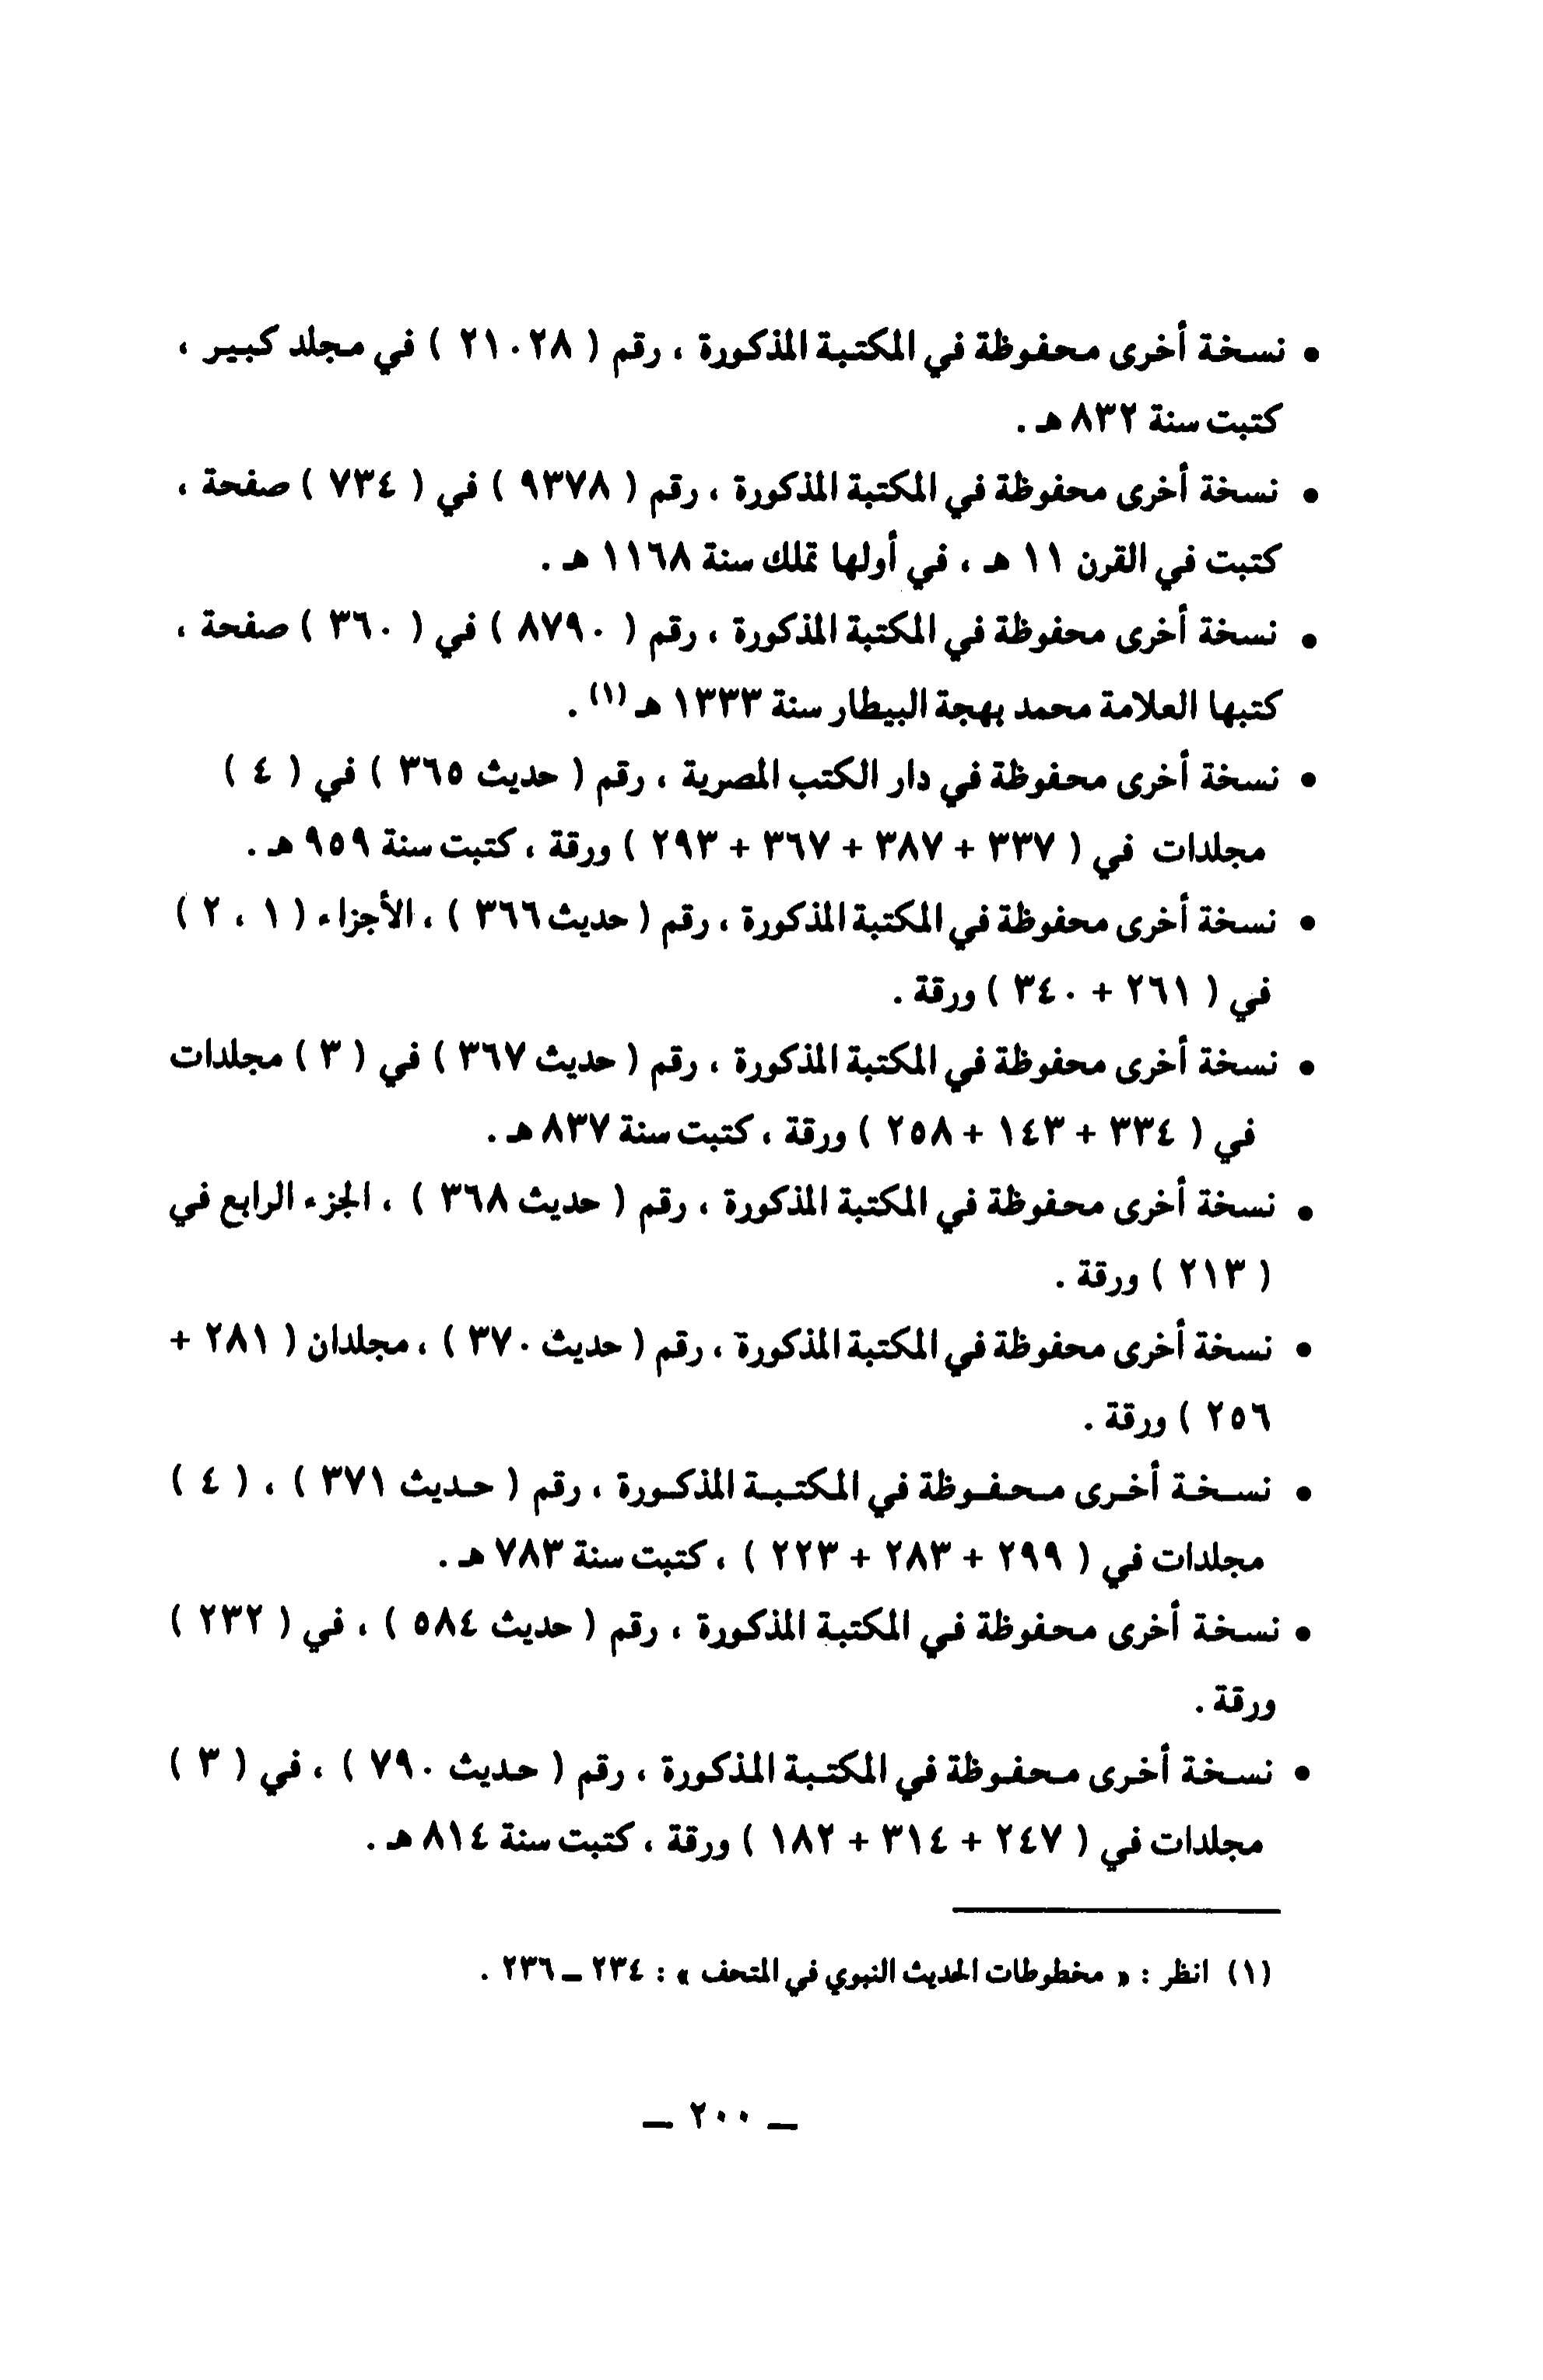 • نسخة أخرى محفوظة في المكتبة المذكورة ، رقم ( ٢١٠٢٨ ) في مجلد كبير ،
كتبت سنة ٨٣٢ هـ .
• نسخة أخرى محفوظة في المكتبة المذكورة ، رقم ( ٩٣٧٨ ) في ( ٧٣٤ ) صفحة ،
كتبت في القرن ١١ هـ ، في أولها تملك سنة ١١٦٨ هـ .
• نسخة أخرى محفوظة في المكتبة المذكورة ، رقم ( ٨٧٩٠ ) في ( ٣٦٠ ) صفحة ،
كتبها العلامة محمد بهجة البيطار سنة ١٣٣٣ هـ (١) .
• نسخة أخرى محفوظة في دار الكتب المصرية ، رقم ( حديث ٣٦٥ ) في ( ٤ )
مجلدات في ( ٣٣٧ + ٣٨٧ + ٣٦٧ + ٢٩٣ ) ورقة ، كتبت سنة ٩٥٩ هـ .
• نسخة أخرى محفوظة في المكتبة المذكورة ، رقم ( حديث ٣٦٦ ) ، الأجزاء ( ١ ، ٢ )
في ( ٢٦١ + ٣٤٠ ) ورقة .
• نسخة أخرى محفوظة في المكتبة المذكورة ، رقم ( حديث ٣٦٧ ) في ( ٣ ) مجلدات
في ( ٣٣٤ + ١٤٣ + ٢٥٨ ) ورقة ، كتبت سنة ٨٣٧ هـ .
• نسخة أخرى محفوظة في المكتبة المذكورة ، رقم ( حديث ٣٦٨ ) ، الجزء الرابع في
( ٢١٣ ) ورقة .
• نسخة أخرى محفوظة في المكتبة المذكورة ، رقم ( حديث ٣٧٠ ) ، مجلدان ( ٢٨١ +
٢٥٦ ) ورقة .
• نسخة أخرى محفوظة في المكتبة المذكورة ، رقم ( حديث ٣٧١ ) ، ( ٤ )
مجلدات في ( ٢٩٩ + ٢٨٣ + ٢٢٣ ) ، كتبت سنة ٧٨٣ هـ .
• نسخة أخرى محفوظة في المكتبة المذكورة ، رقم ( حديث ٥٨٤ ) ، في ( ٢٣٢ )
ورقة .
• نسخة أخرى محفوظة في المكتبة المذكورة ، رقم ( حديث ٧٩٠ ) ، في ( ٣ )
مجلدات في ( ٢٤٧ + ٣١٤ + ١٨٢ ) ورقة ، كتبت سنة ٨١٤ هـ .
(١) انظر : « مخطوطات الحديث النبوي في المتحف » : ٢٣٤ ـ ٢٣٦ .
ـ ٢٠٠ ـ